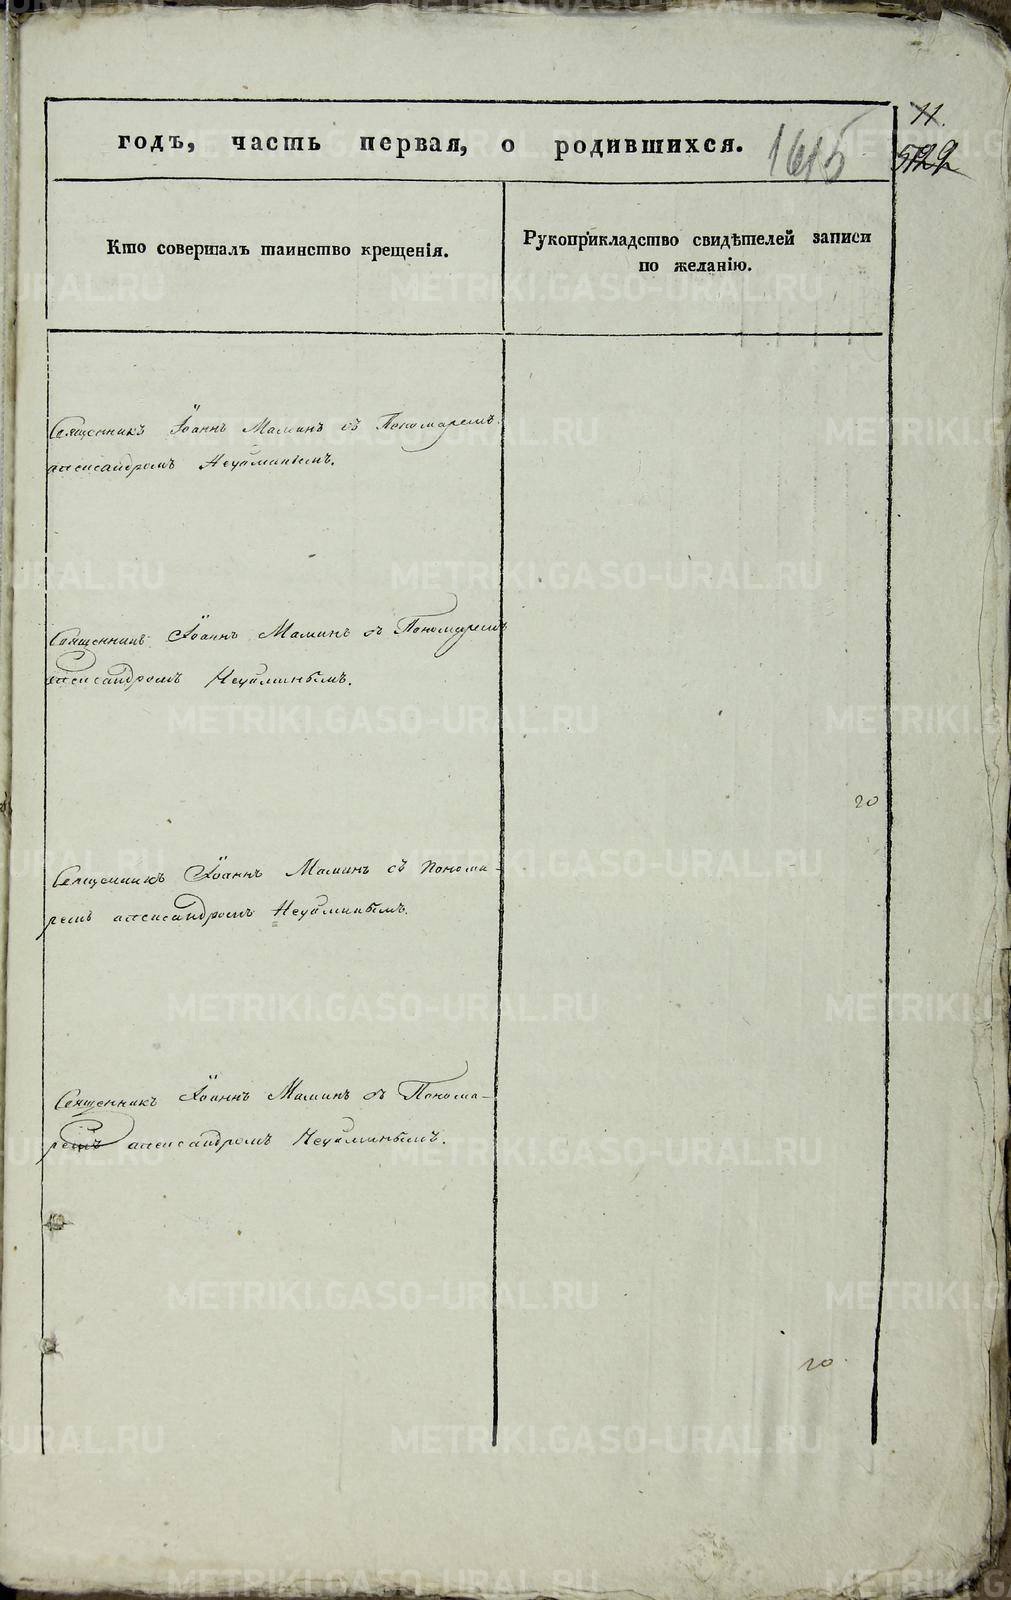 11.
годъ, часть первая, о родившихся.
1615
522
Кто совершалъ таинство крещенія.
Рукоприкладство свидѣтелей записи
по желанію.
Священникъ Іоаннъ Маминъ съ Пономаремъ
александромъ Неуйминымъ.
Священникъ Іоаннъ Маминъ съ Пономаремъ
александромъ Неуйминымъ.
20
Священникъ Іоаннъ Маминъ съ понома-
ремъ александромъ Неуйминымъ.
Священникъ Іоаннъ Маминъ съ Понома-
ремъ александромъ Неуйминымъ.
20
METRIKI.GASO-URAL.RU